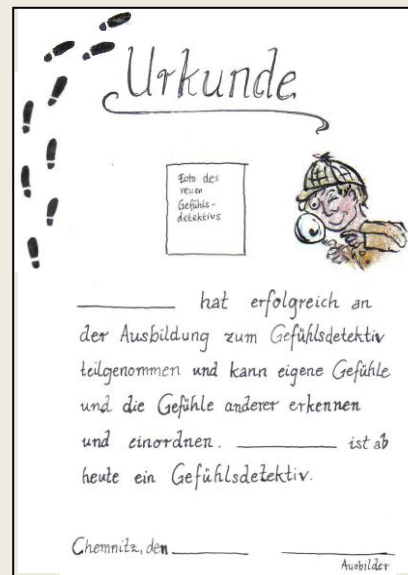 Urkunde
Foto des
neuen
Gefühls-
detektivs
hat erfolgreich an
der Ausbildung zum Gefühlsdetektiv
teilgenommen und kann eigene Gefühle
und die Gefühle anderer erkennen
und einordnen. ist ab
heute ein Gefühlsdetektiv.
Chemnitz, den
Ausbilder